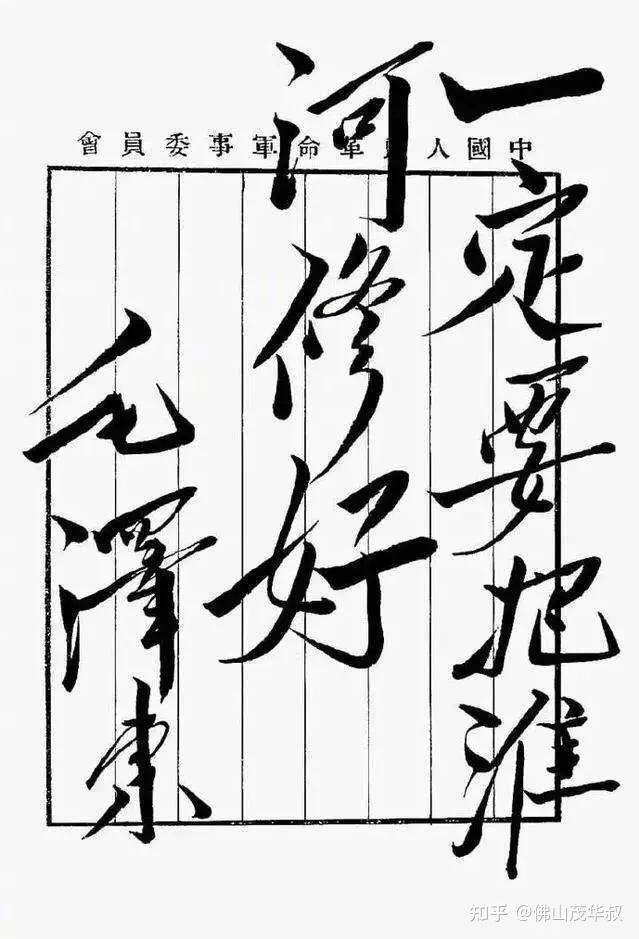 中國人民革命軍事委員會
一定要把淮
河修好
毛澤東
知乎 @佛山茂华叔